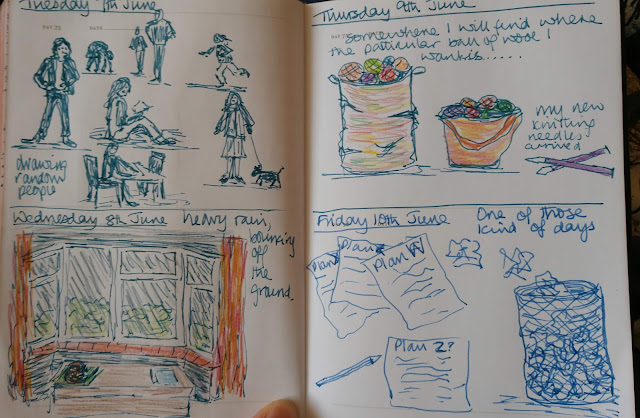 Tuesday 7th June
drawing
random
people
Wednesday 8th June
heavy rain,
bouncing
off
the
ground.
Thursday 9th June
somewhere I will find where
the particular ball of wool I
want is......
my new
knitting
needles
arrived
Friday 10th June
One of those
kind of days
Plan
Plan
Plan W
Plan Z?